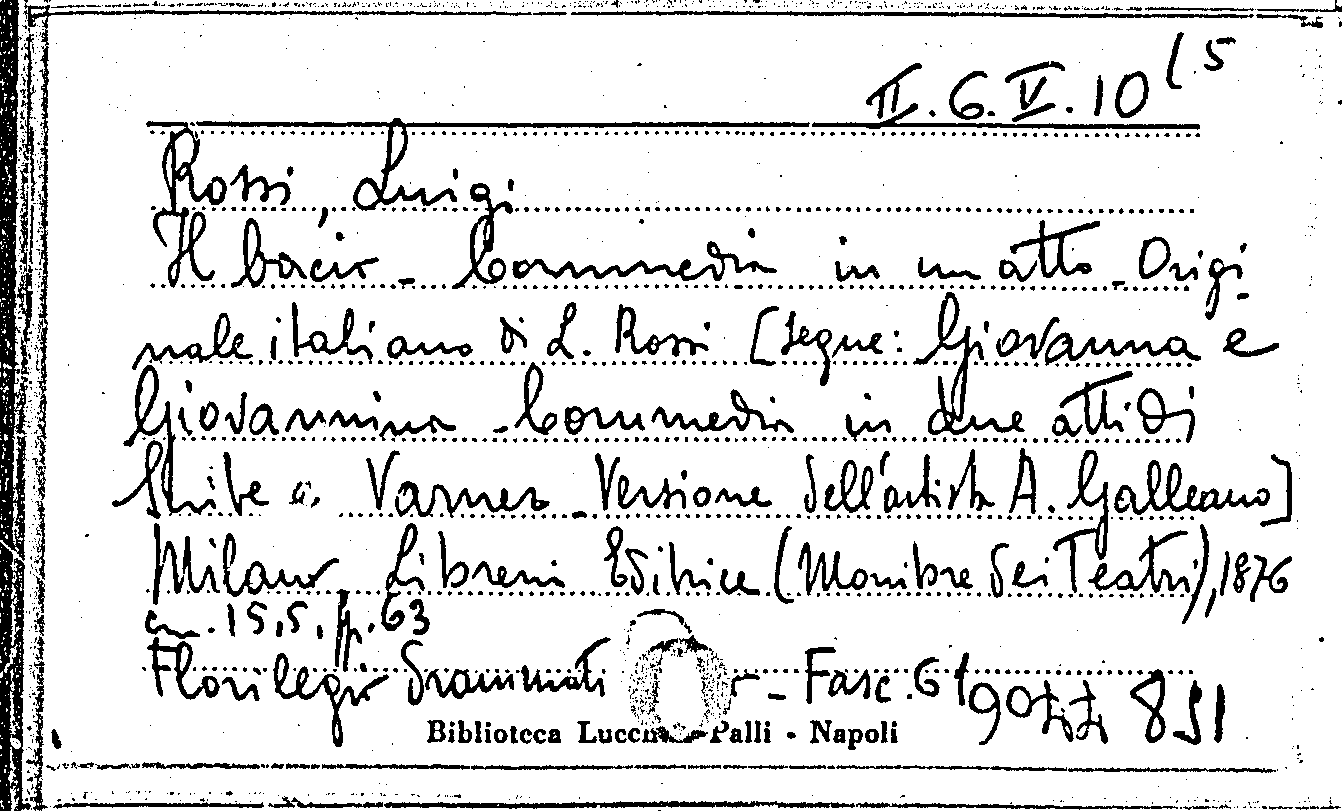 II.6.V.10(5
Rossi, Luigi
Il bacio - Commedia in un atto - Origi
nale italiano di L. Rossi [segue: Giovanna e
Giovannina - Commedia in due atti di
Scribe e Varner - Versione dell'artista A. Galleano]
Milano, Libreria Editrice (Monitore dei Teatri), 1876
cm. 15,5, pp. 63
Florilegio drammati - Fasc. 61
Biblioteca Palli - Napoli